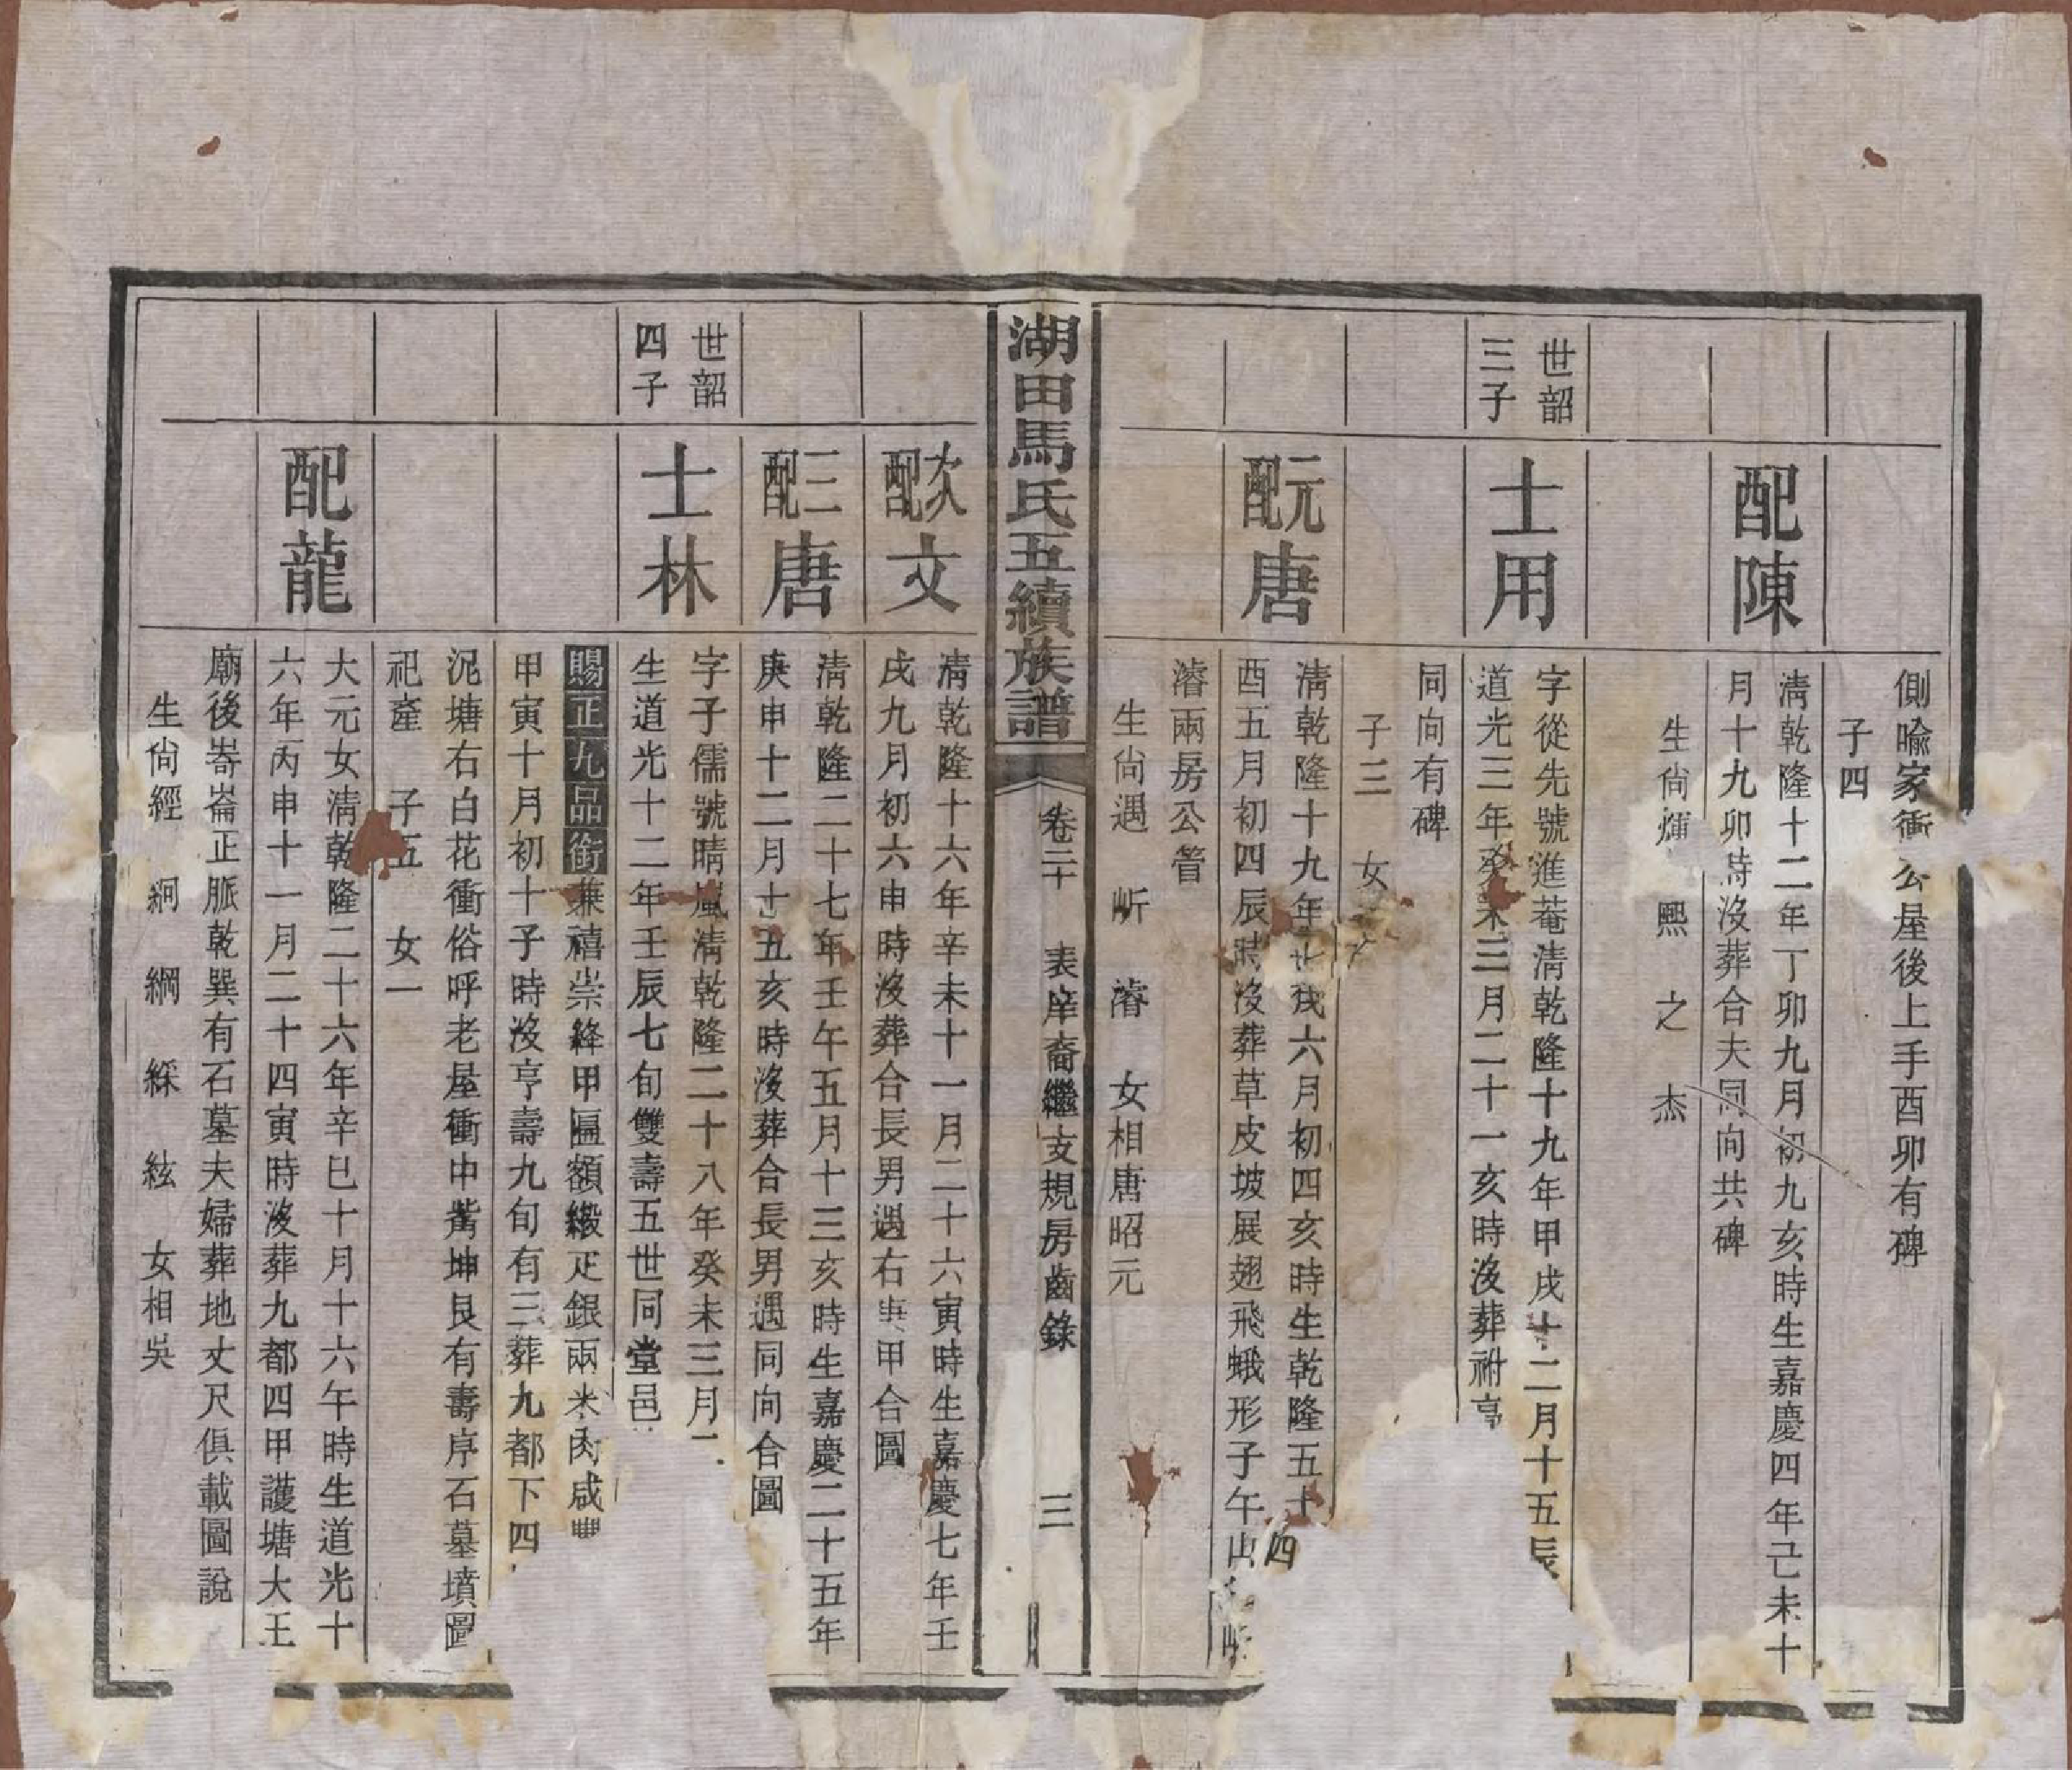 側喻家衝公屋後上手酉卯有碑
子四
配陳
清乾隆十二年丁卯九月初九亥時生嘉慶四年己未十
月十九卯時沒葬合夫同向共碑
生尙煇 熙 之 杰
世韶
三子
士用
字從先號進菴清乾隆十九年甲戌十二月十五辰
道光三年癸未三月二十一亥時沒葬祔亭
同向有碑
子三 女
元配唐
清乾隆十九年 戌六月初四亥時生乾隆五十四
酉五月初四辰時沒葬草皮坡展翅飛蛾形子午山
濬兩房公管
生尙遇 㟁 濬 女相唐昭元
湖田馬氏五續族譜
卷二十 表庠裔繼支規房齒錄 三
次配文
清乾隆十六年辛未十一月二十六寅時生嘉慶七年壬
戌九月初六申時沒葬合長男遇右庚甲合圖
三配唐
清乾隆二十七年壬午五月十三亥時生嘉慶二十五年
庚申十二月十五亥時沒葬合長男遇同向合圖
世韶
四子
士林
字子儒號晴嵐清乾隆二十八年癸未三月
生道光十二年壬辰七旬雙壽五世同堂邑
賜正九品銜兼禧崇絳甲匾額緞疋銀兩米肉咸豐
甲寅十月初十子時沒亨壽九旬有三葬九都下四
泥塘右白花衝俗呼老屋衝中嘴坤艮有壽序石墓墳圖
祀產 子五 女一
配龍
大元女清乾隆二十六年辛巳十月十六午時生道光十
六年丙申十一月二十四寅時沒葬九都四甲護塘大王
廟後嵜崙正脈乾巽有石墓夫婦葬地丈尺俱載圖說
生尙經 絅 綱 綵 絃 女相吳